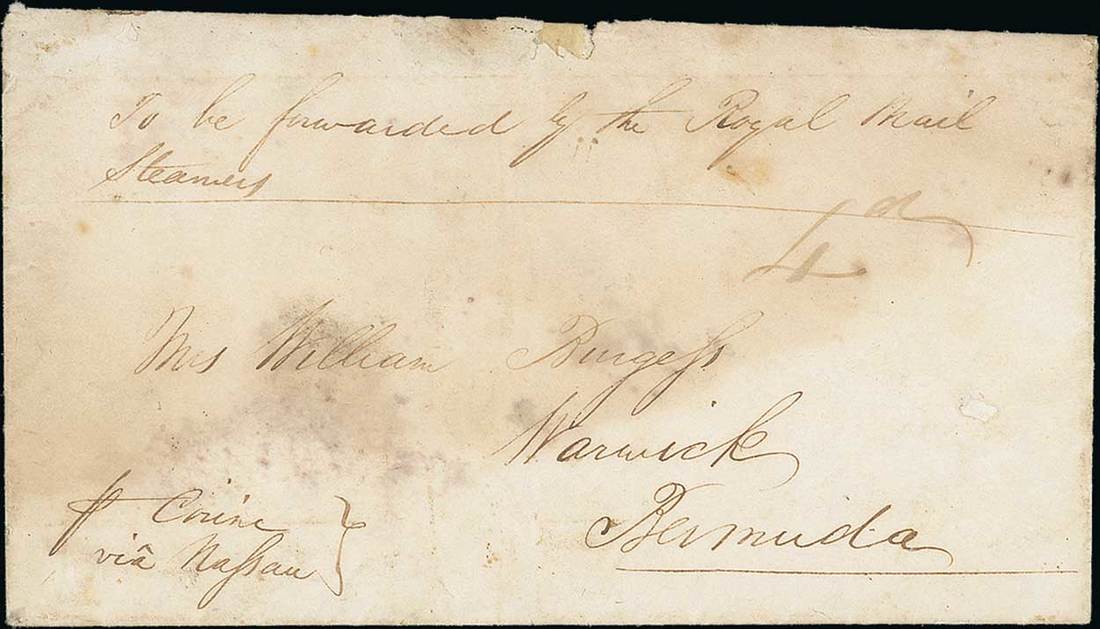 To be forwarded by the Royal Mail
Steamers
4d
Mrs William Burgess
Warwick
Bermuda
p Corine
via Nassau